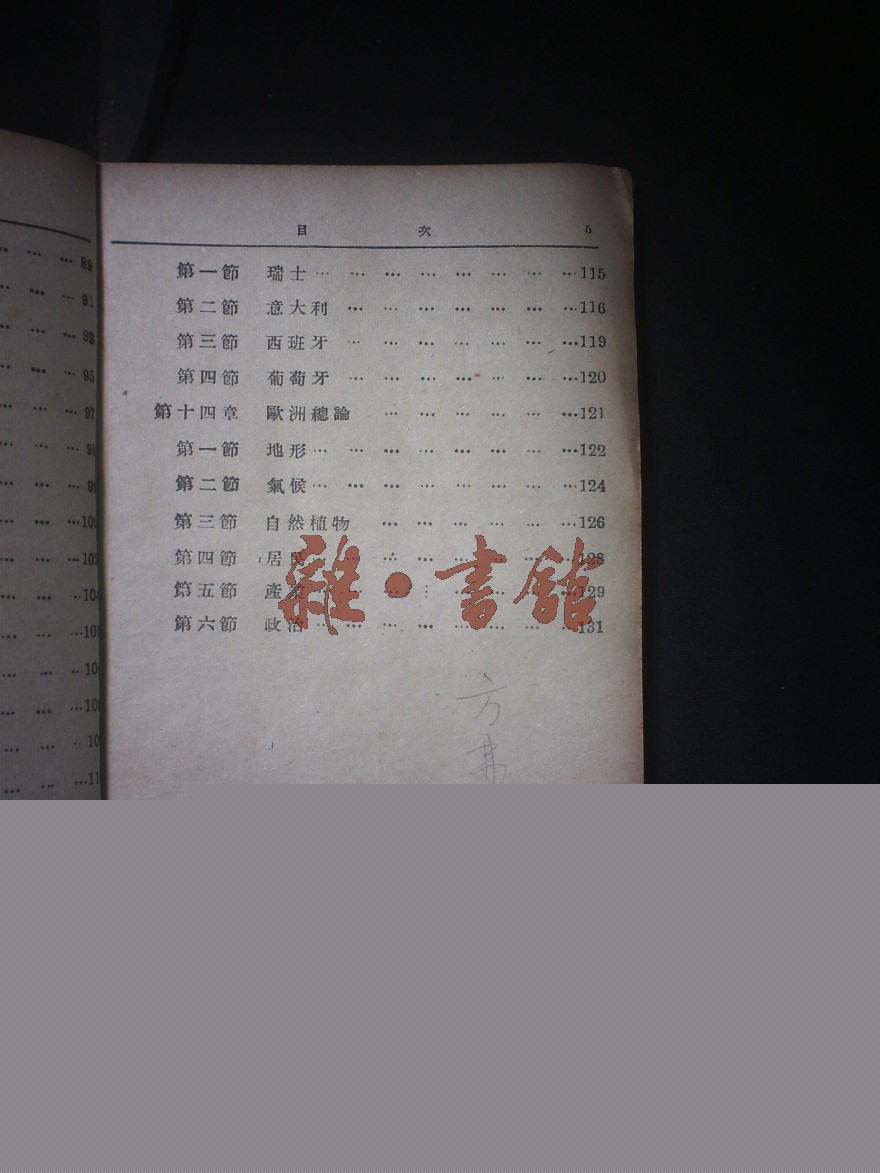 89
91
93
95
97
100
102
目 次 5
第一節 瑞士 … … … … … … … …115
第二節 意大利 … … … … … … …116
第三節 西班牙 … … … … … … …119
第四節 葡萄牙 … … … … … … …120
第十四章 歐洲總論 … … … … … …121
第一節 地形 … … … … … … … …122
第二節 氣候 … … … … … … … …124
第三節 自然植物 … … … … … …126
第四節 居民 … … … … … … … …128
第五節 產業 … … … … … … … …129
第六節 政治 … … … … … … … …131
雜·書館
方